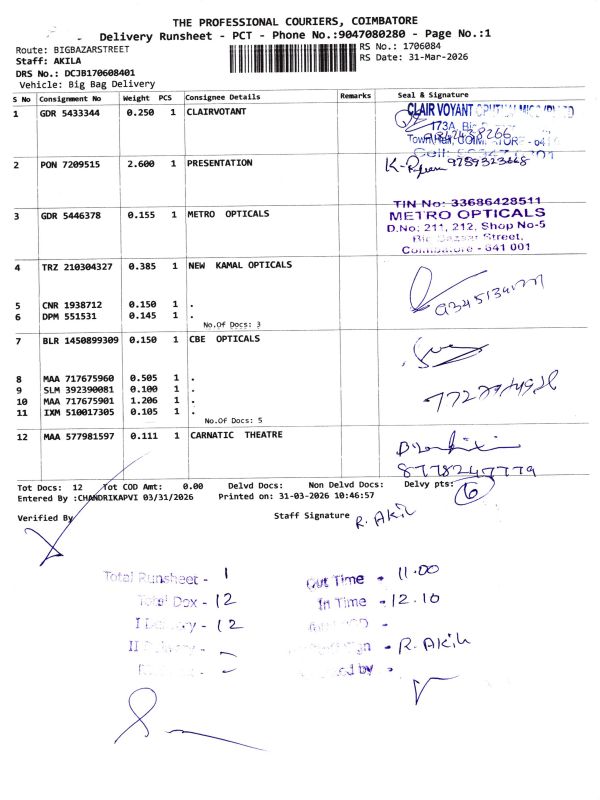 THE PROFESSIONAL COURIERS, COIMBATORE
Delivery Runsheet - PCT - Phone No.:9047080280 - Page No.:1
Route: BIGBAZARSTREET
RS No.: 1706084
Staff: AKILA
RS Date: 31-Mar-2026
DRS No.: DCJB170608401
Vehicle: Big Bag Delivery
S No Consignment No Weight PCS Consignee Details Remarks Seal & Signature
1 GDR 5433344 0.250 1 CLAIRVOTANT
CLAIR VOYANT
173A,
2 PON 7209515 2.600 1 PRESENTATION
9789323668
TIN No: 33686428511
3 GDR 5446378 0.155 1 METRO OPTICALS
METRO OPTICALS
D.No: 211, 212, Shop No-5
Big Bazaar Street,
Coimbatore - 641 001
4 TRZ 210304327 0.385 1 NEW KAMAL OPTICALS
5 CNR 1938712 0.150 1 .
6 DPM 551531 0.145 1 .
No.Of Docs: 3
7 BLR 1450899309 0.150 1 CBE OPTICALS
8 MAA 717675960 0.505 1 .
9 SLM 392390081 0.100 1 .
10 MAA 717675901 1.206 1 .
11 IXM 510017305 0.105 1 .
No.Of Docs: 5
12 MAA 577981597 0.111 1 CARNATIC THEATRE
8778247779
Tot Docs: 12 Tot COD Amt: 0.00 Delvd Docs: Non Delvd Docs: Delvy pts: 6
Entered By :CHANDRIKAPVI 03/31/2026 Printed on: 31-03-2026 10:46:57
Verified By
Staff Signature R. Akil
Total Runsheet - 1
Out Time - 11.00
Total Dox - 12
In Time - 12.10
- 12
- R. Akil
by -